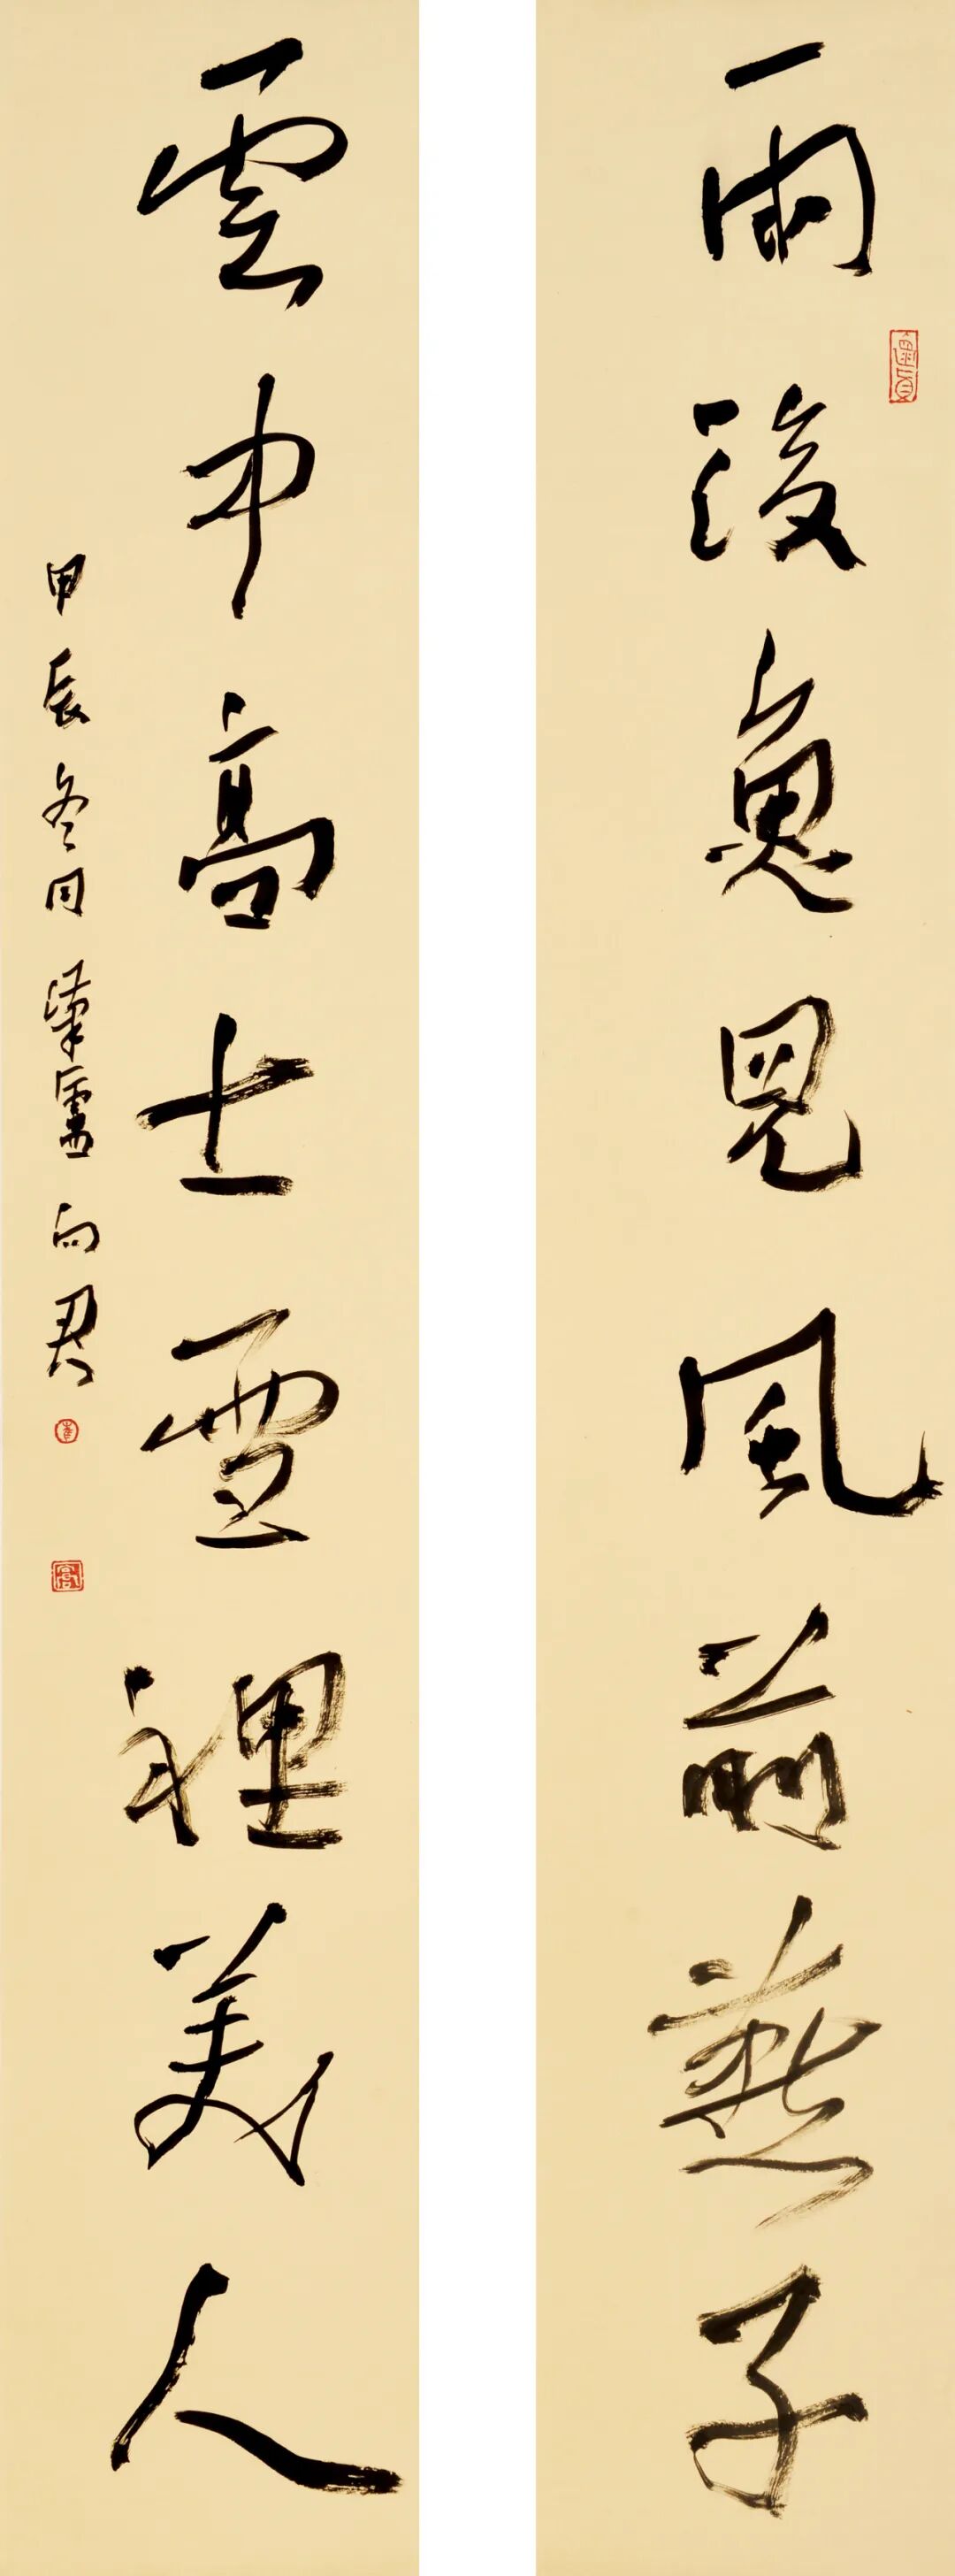 雨後魚兒風前燕子
雲中高士雪裡美人
甲辰冬月 肇廬 向君